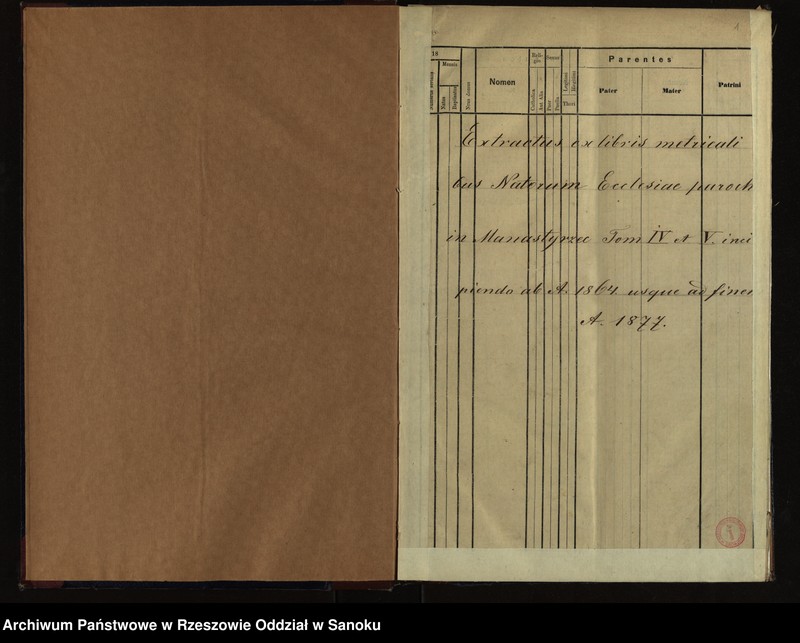 1
18
Mensis
Natus
Baptisatus
Numerus Domus
Nomen
Reli-
gio
Catholica
Aut Alia
Sexus
Puer
Puella
Legitimi
Illegitimi
Thori
Parentes
Pater
Mater
Patrini
Extractus ex libris metricali
bus Natorum Ecclesiae paroch
in Manastyrzec Tom IV et V. inci
piendo ab A. 1864 usque ad finem
A. 1877.
Archiwum Państwowe w Rzeszowie Oddział w Sanoku